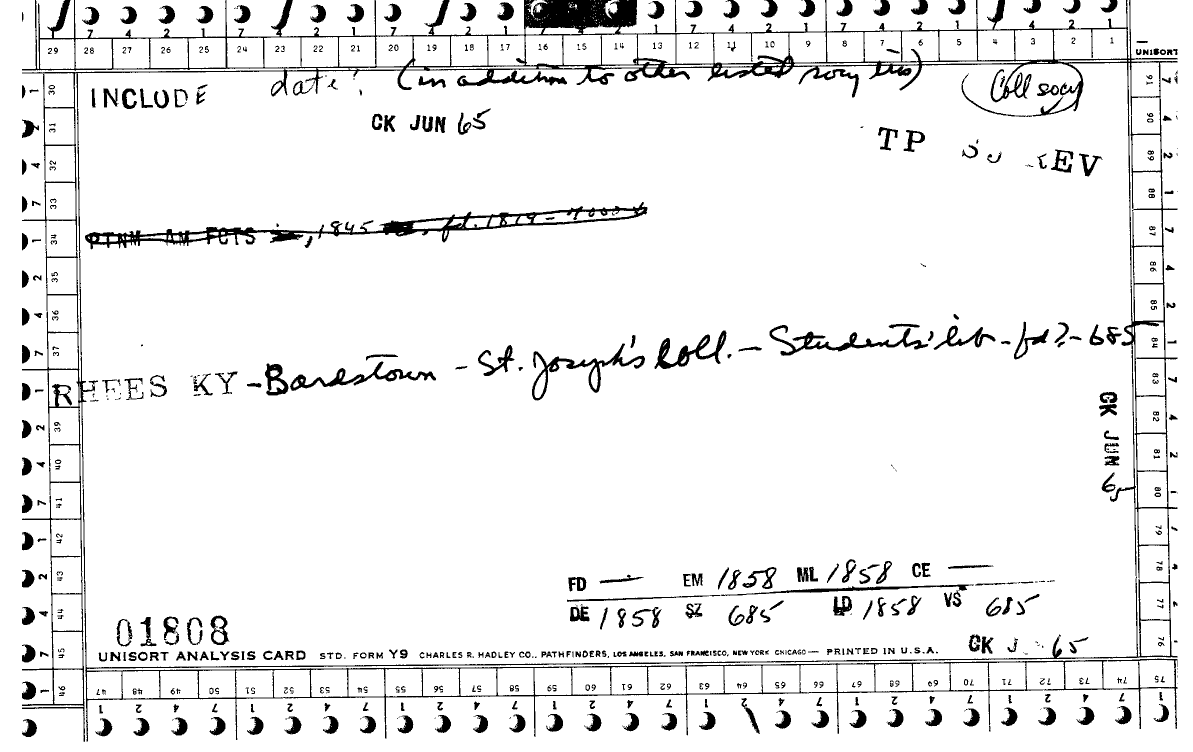 7 4 2 1 7 4 2 1 7 4 2 1 7 4 2 1 7 4 2 1
29 28 27 26 25 24 23 22 21 20 19 18 17 16 15 14 13 12 11 10 9 8 7 6 5 4 3 2 1
UNISORT
INCLUDE date? (in addition to other listed socy libs) Coll socy
CK JUN 65
TP REV
PTNM AM FCTS, 1845, fd. 1819 - 7000 v
RHEES KY - Bardstown - St. Joseph's Coll. - Students' lib - fd? - 685
CK JUN 65
FD — EM 1858 ML 1858 CE —
DE 1858 SZ 685 LD 1858 VS 685
01808
CK J 65
UNISORT ANALYSIS CARD STD. FORM Y9 CHARLES R. HADLEY CO., PATHFINDERS, LOS ANGELES, SAN FRANCISCO, NEW YORK CHICAGO — PRINTED IN U.S.A.
30 31 32 33 34 35 36 37 39 40 41 42 43 44 45 46
91 90 89 88 87 86 85 84 83 82 81 80 79 78 77 76 75
47 48 49 50 51 52 53 54 55 56 57 58 59 60 61 62 63 64 65 66 67 68 69 70 71 72 73 74 75